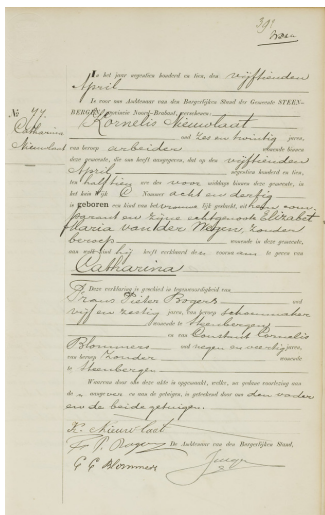 391
In het jaar negentien honderd en tien, den vijftienden
April
is voor ons Ambtenaar van den Burgerlijken Stand der Gemeente STEEN-
BERGEN, provincie Noord-Brabant, verschenen:
No 77
Catharina
Nieuwlaat
Kornelis Nieuwlaat
oud zes en twintig jaren,
van beroep arbeider wonende binnen
deze gemeente, die ons heeft aangegeven, dat op den vijftienden
April negentien honderd en tien,
ten half tien ure des voor middags binnen deze gemeente, in
het huis Wijk C Nummer acht en dertig
is geboren een kind van het vrouwelijk geslacht, uit hem com-
parant en zijne echtgenoote Elizabet
Maria van der Wegen, zonder
beroep wonende in deze gemeente,
aan welk kind hij heeft verklaard den voornaam te geven van
Catharina
Deze verklaring is geschied in tegenwoordigheid van
Frans Pieter Bogers oud
vijf en zestig jaren, van beroep schoenmaker
wonende te Steenbergen
en van Constant Cornelis
Blommers oud negen en veertig jaren,
van beroep zonder wonende
te Steenbergen
Waarvan door ons deze akte is opgemaakt, welke, na gedane voorlezing aan
de aangever en aan de getuigen, is geteekend door ons, den vader
en de beide getuigen.
K. Nieuwlaat
F. P. Bogers De Ambtenaar van den Burgerlijken Stand,
C C Blommers